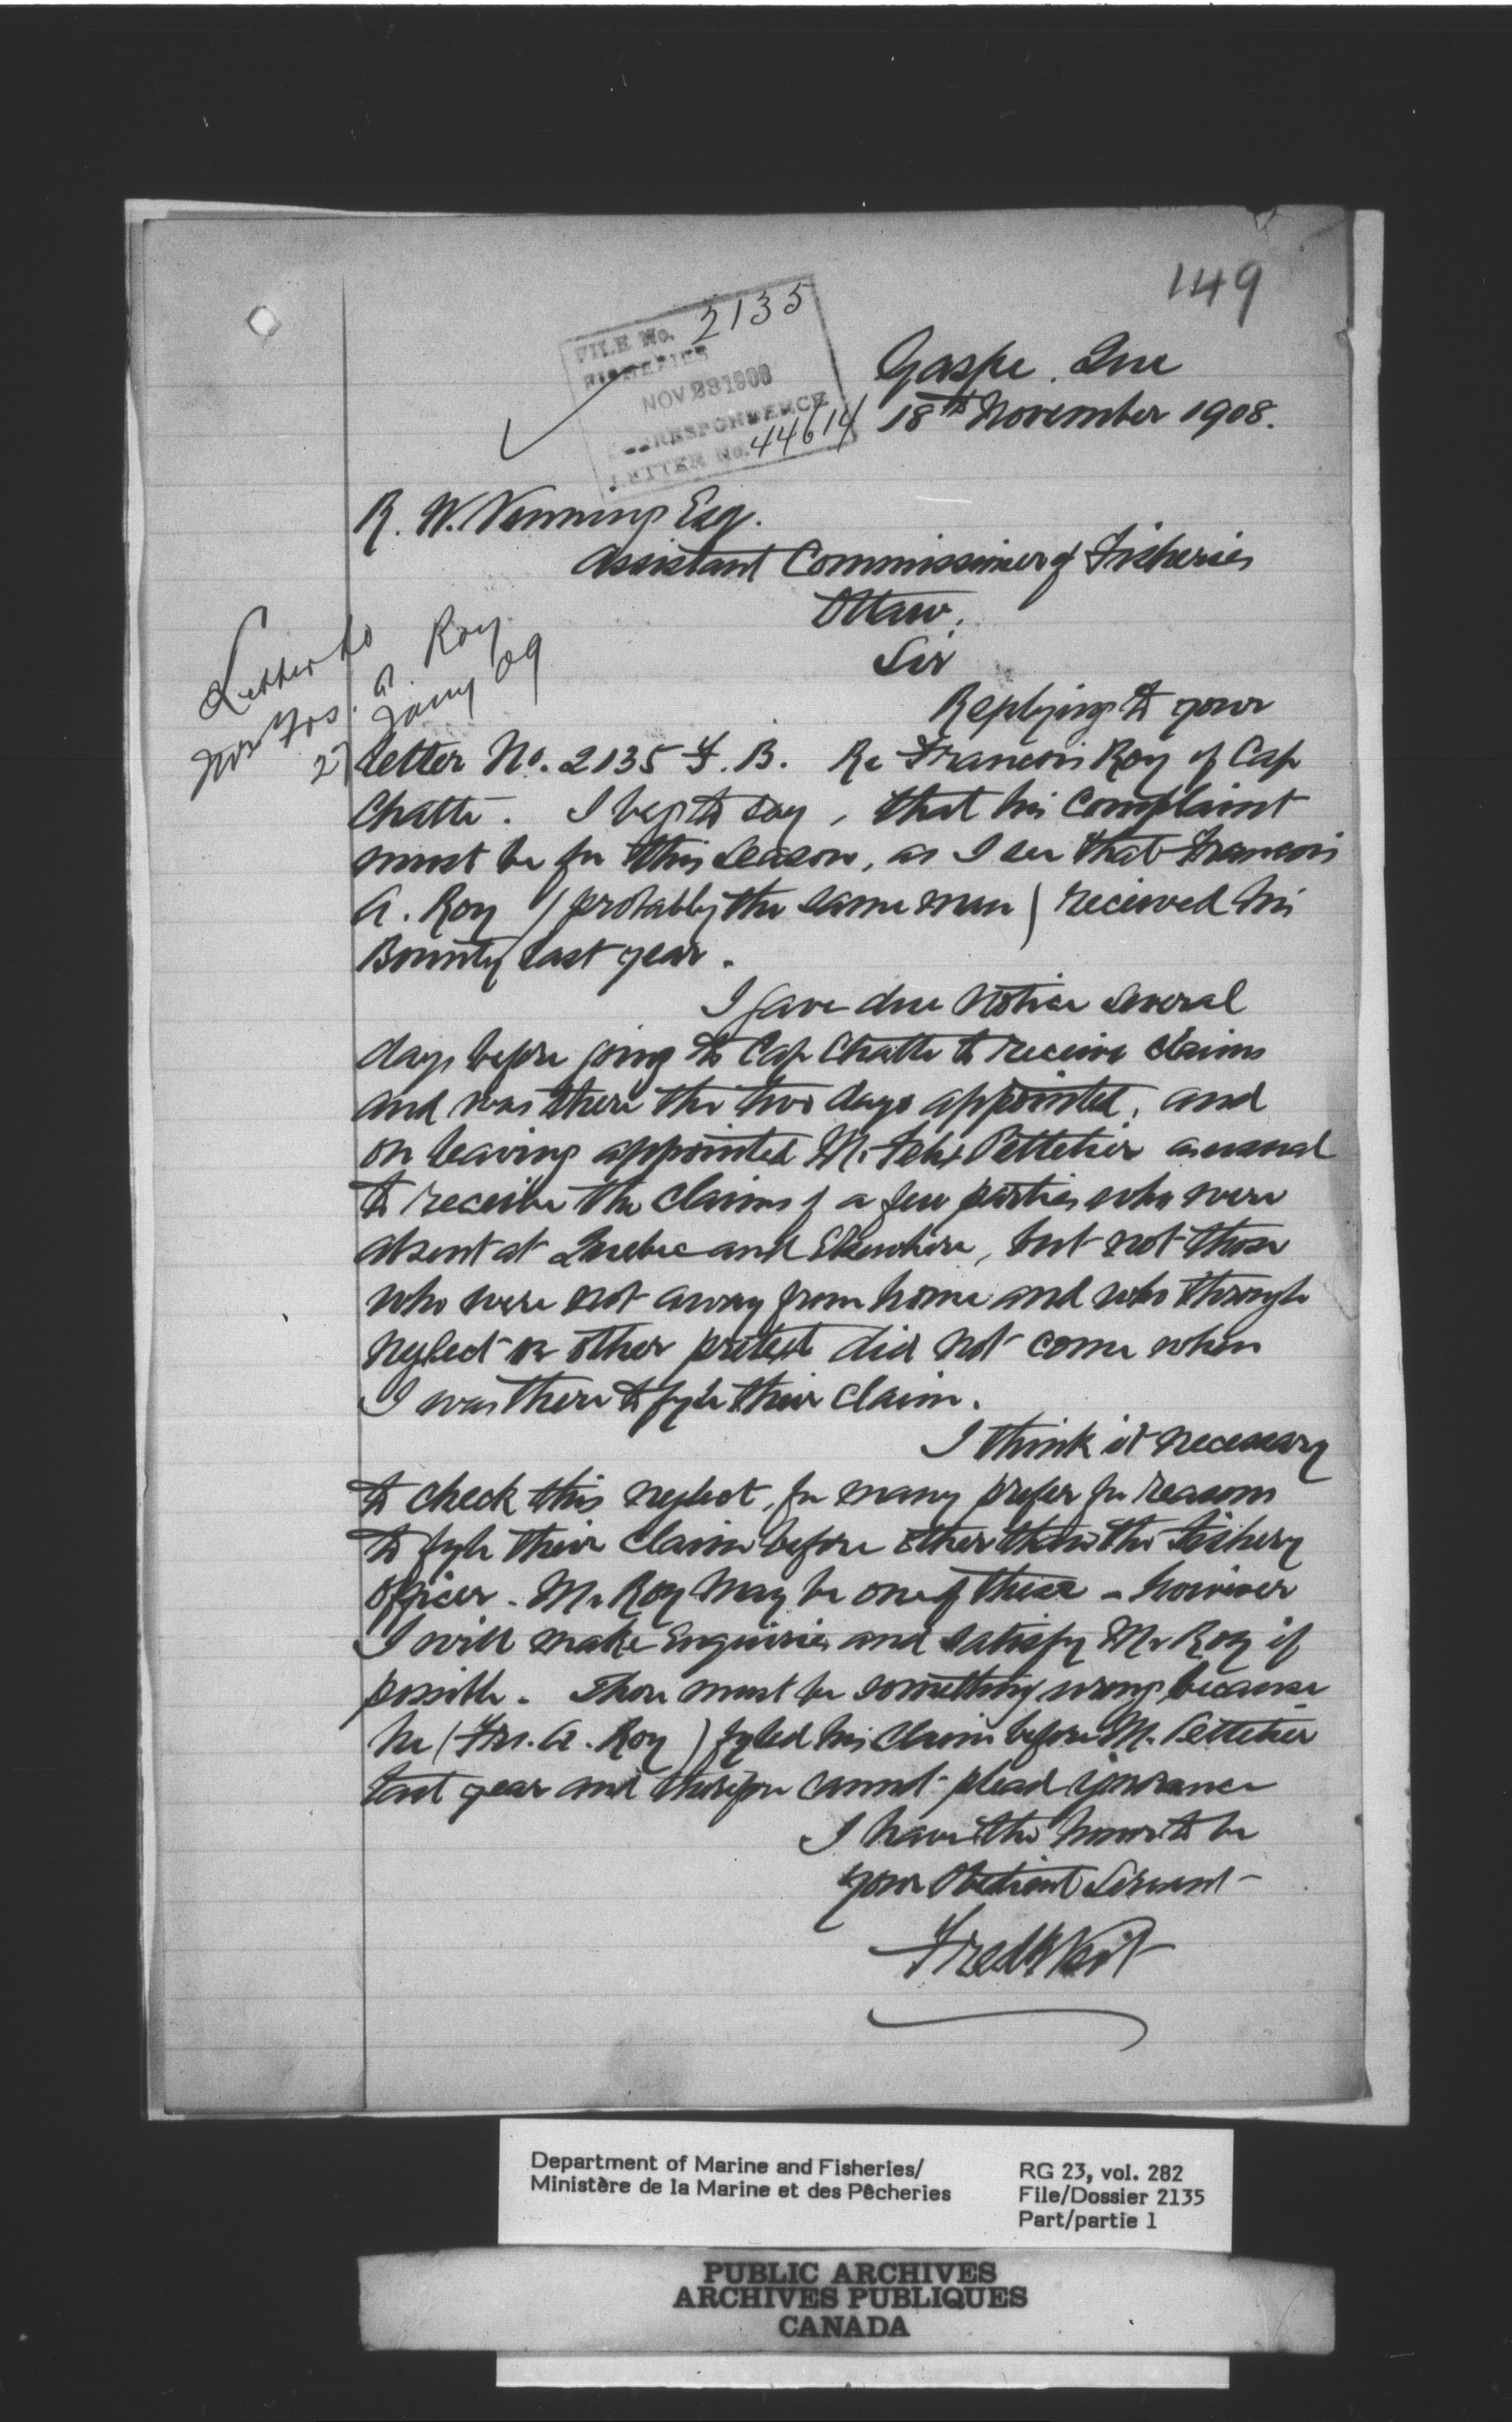 149
FILE No. 2135
FISHERIES
NOV 23 1908
CORRESPONDENCE
LETTER No. 44614
Gaspe. Que
18th November 1908.
R. W. Venning Esq.
Assistant Commissioner of Fisheries
Ottaw.
Sir
Letter to
Frs. A. Roy
27 Jany 09
Replying to your
letter No. 2135 F. B. Re Francois Roy of Cap
Chatte. I beg to say, that his Complaint
must be for this Season, as I see that Francois
A. Roy (probably the same man) received his
Bounty last year.
I gave due notice Several
days before going to Cap Chatte to receive Claims
and was there the two days appointed, and
on leaving appointed M. Felix Pelletier as usual
to receive the Claims of a few parties who were
absent at Quebec and Elsewhere, but not those
who were not away from home and who through
neglect or other pretext did not come when
I was there to fyle their Claim.
I think it necessary
to check this neglect, for many prefer for reasons
to fyle their Claim before other than the Fishery
Officer. Mr Roy may be one of these - however
I will make Enquiries and satisfy Mr Roy if
possible. There must be something wrong because
he (Frs. A. Roy) fyled his Claim before M. Pelletier
last year and therefore cannot plead ignorance
I have the honor to be
your Obedient Servant
Fredk Veit
Department of Marine and Fisheries/
Ministère de la Marine et des Pêcheries
RG 23, vol. 282
File/Dossier 2135
Part/partie 1
PUBLIC ARCHIVES
ARCHIVES PUBLIQUES
CANADA